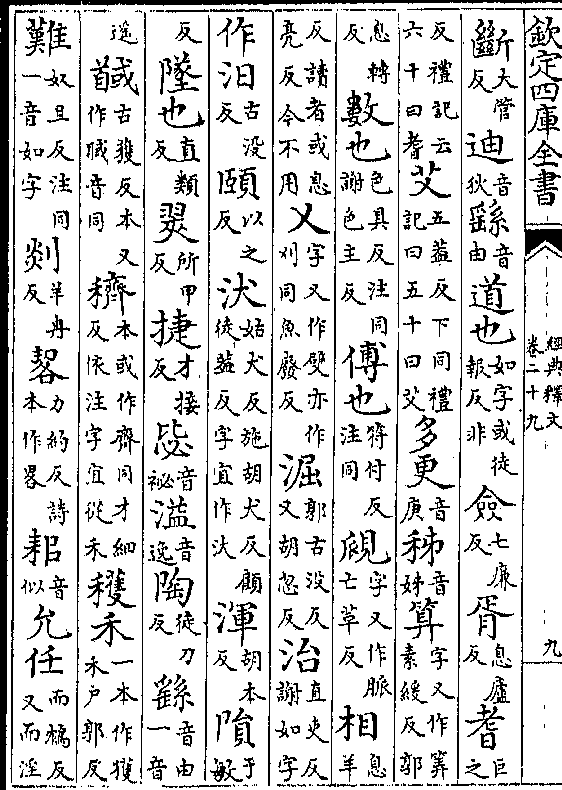 欽定四庫全書
經典釋文
卷二十九
九
斷大管反迪音狄繇音由道也如字或徒報反非僉七廉反胥息廬反耆巨之
反禮記云六十曰耆艾五葢反下同禮記曰五十曰艾多更音庚秭音姊算字又作筭素緩反郭
息轉反數也色具反注同謝色主反傅也符付反注同覛字又作脈亡草反相息羊
反讀者或息亮反今不用乂字又作嬖亦作刈同魚廢反淈郭古没反又胡忽反治直吏反謝如字
作汩古没反頤以之反汱姑犬反施胡犬反顧徒葢反字宜作汏渾胡本反隕于敏
反墜也直類反翜所甲反捷才接反毖音祕溢音逸陶徒刀反繇音由一音
遙馘古獲反本又作聝音同穧本或作齊同才細反依注字宜從禾穫禾一本作獲禾戶郭反
難奴旦反注同一音如字剡羊冉反䂮力約反詩本作畧耜音似允任而鴆反又而淫